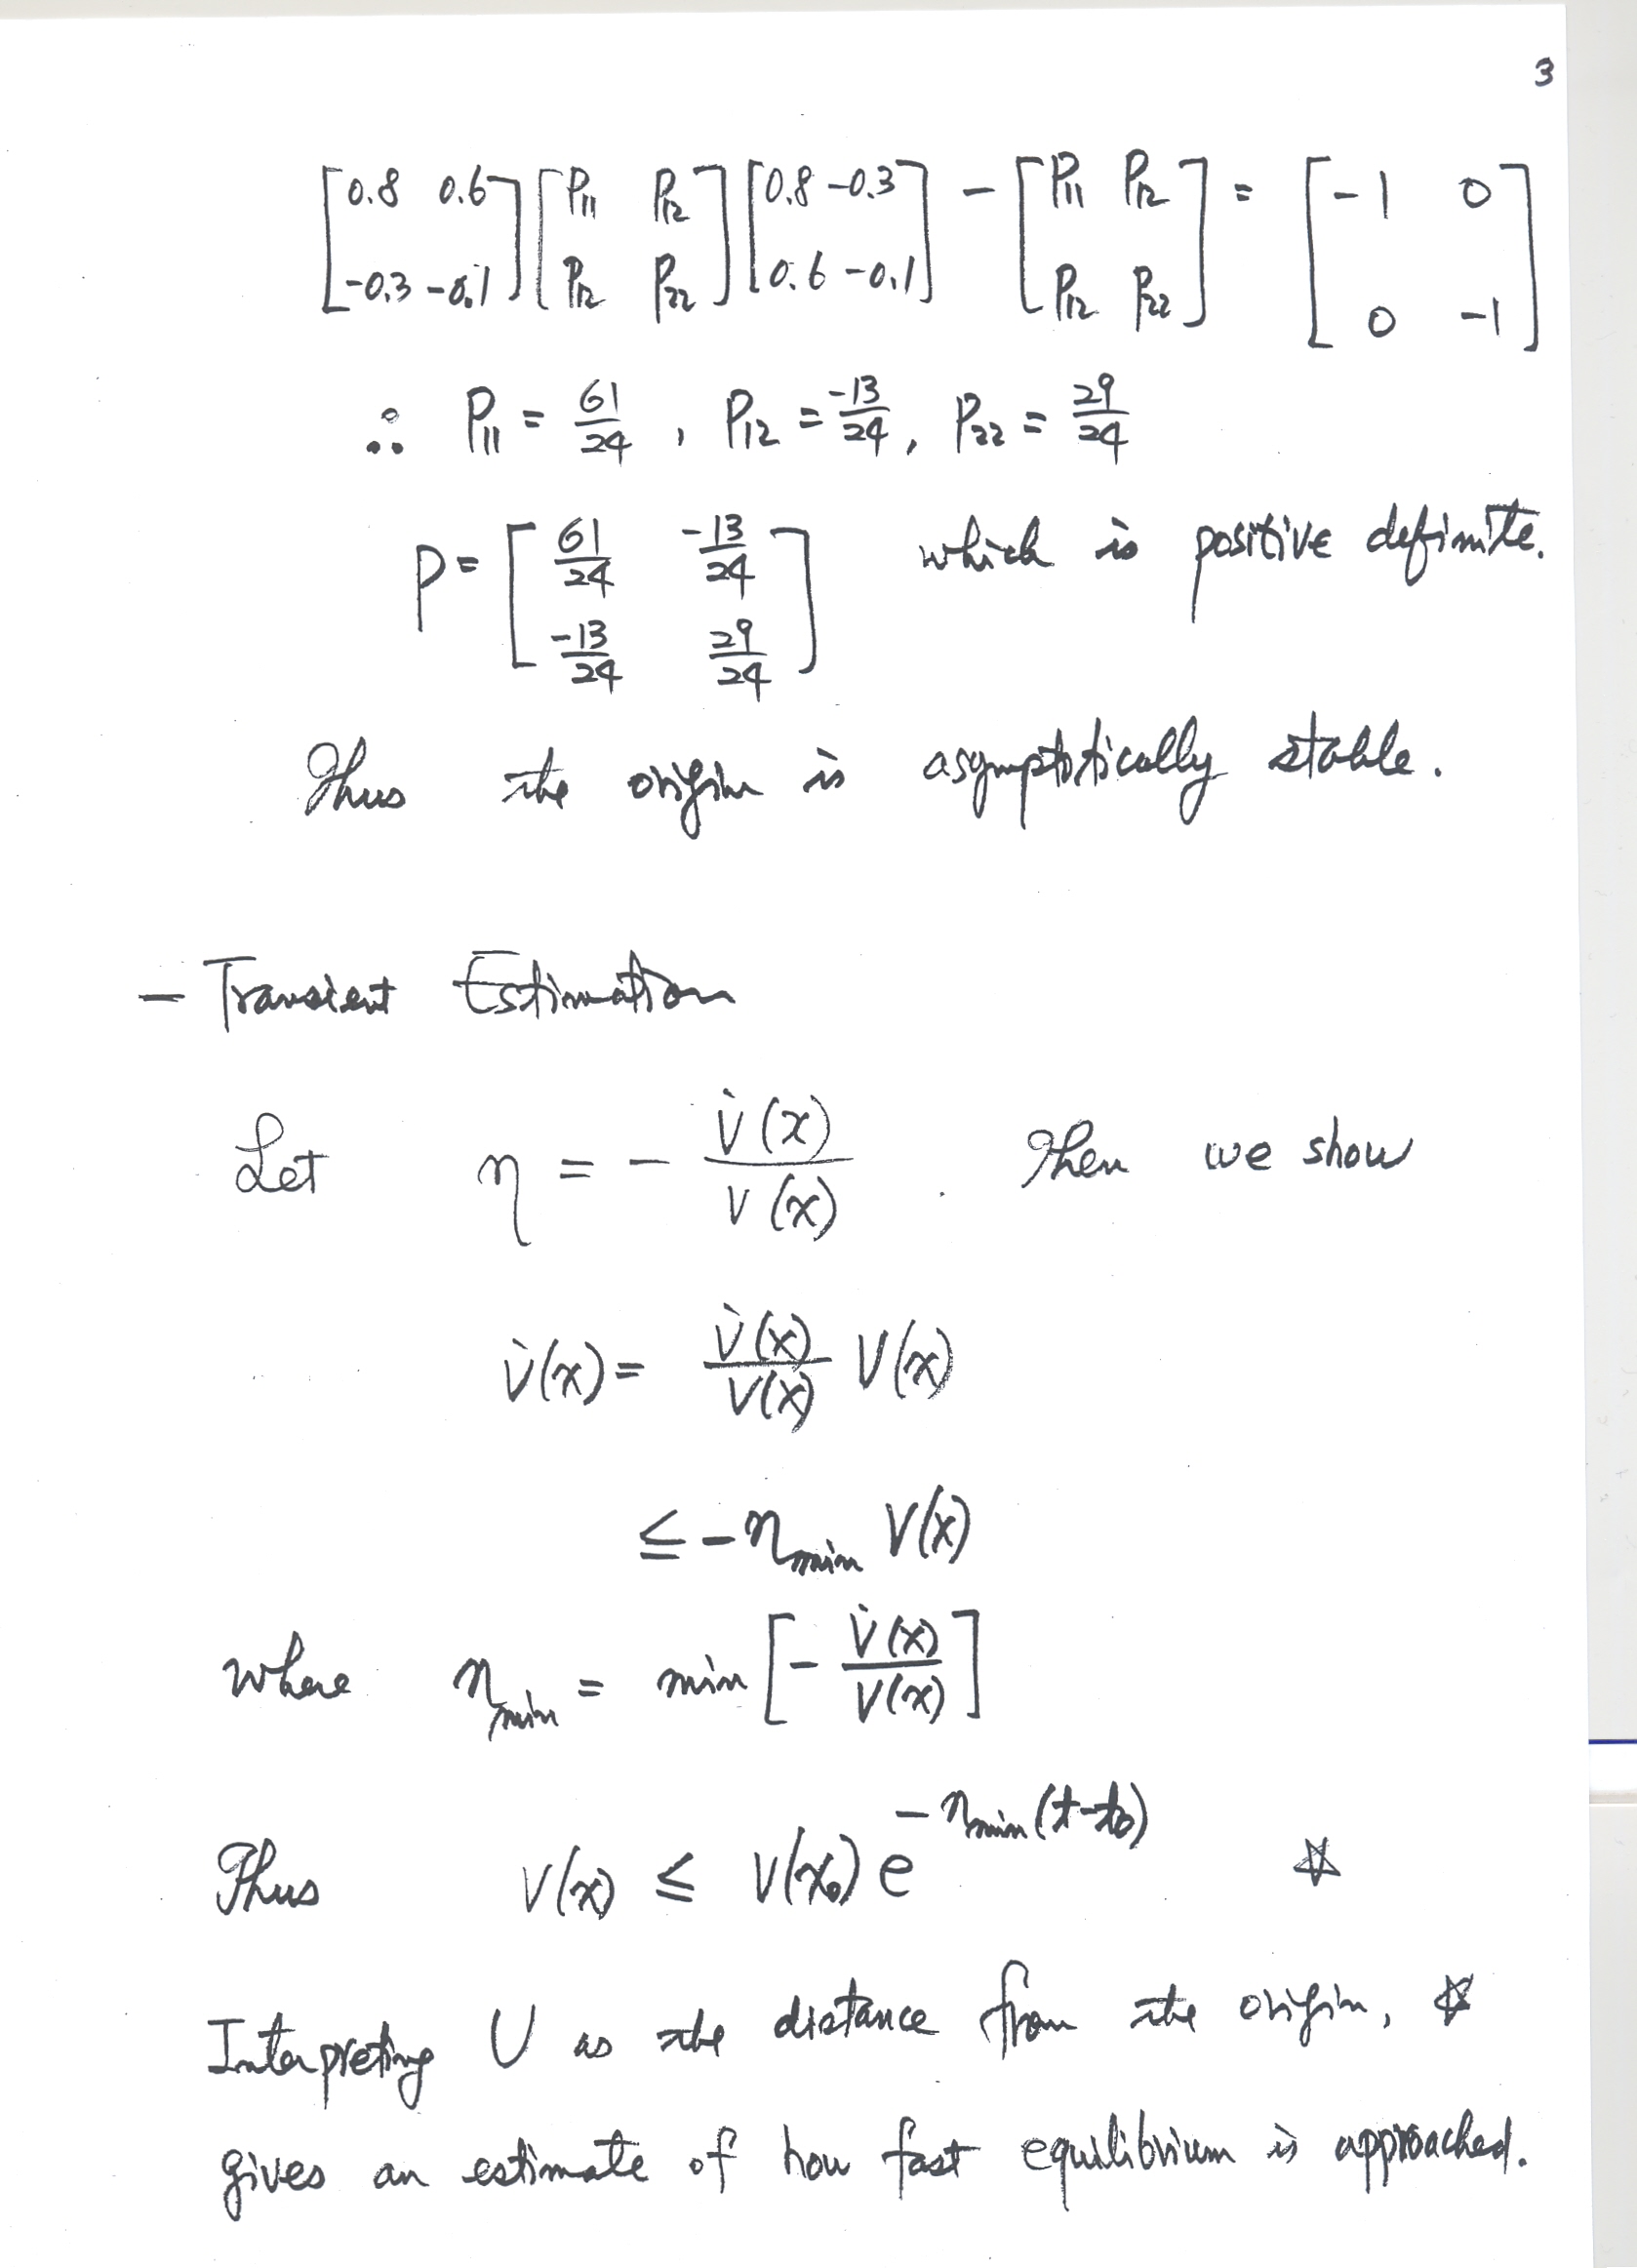 3
[0.8 0.6; -0.3 -0.1] [P₁₁ P₁₂; P₁₂ P₂₂] [0.8 -0.3; 0.6 -0.1] - [P₁₁ P₁₂; P₁₂ P₂₂] = [-1 0; 0 -1]
∴ P₁₁ = 61/24 , P₁₂ = -13/24 , P₂₂ = 29/24
P = [61/24 -13/24; -13/24 29/24] which is positive definite.
Thus the origin is asymptotically stable.
- Transient Estimation
Let η = - V̇(x)/V(x) . Then we show
V̇(x) = V̇(x)/V(x) V(x)
≤ -η_min V(x)
where η_min = min [- V̇(x)/V(x)]
Thus V(x) ≤ V(x₀) e^{-η_min (t-t₀)} ☆
Interpreting V as the distance from the origin, ☆
gives an estimate of how fast equilibrium is approached.